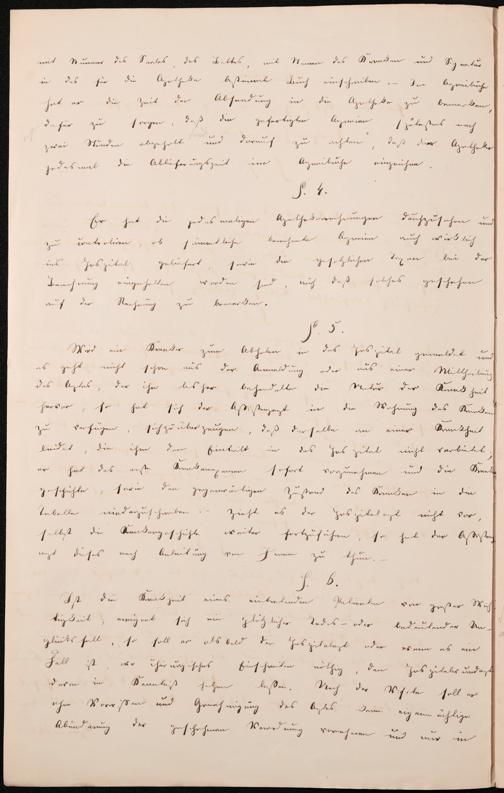 mit Nummer des Saales, des Bettes, mit Namen des Kranken und Signatur
in das für die Apotheke bestimmte Buch einschreiben. – Im Arzneibuche
hat er die Zeit der Absendung in die Apotheke zu bemerken,
dafür zu sorgen, daß die gefertigten Arzneien spätestens nach
zwei Stunden abgeholt und darauf zu achten, daß der Apotheker
jedesmal die Ablieferungszeit im Arzneibuche einzeichne.
§. 4.
Er hat die jedesmaligen Apothekerrechnungen durchzusehen und
zu controliren, ob sämmtliche berechnete Arzneien auch wirklich
ins Hospital geliefert, sowie die gesetzlichen Taxen bei der
Berechnung eingehalten worden sind, auch daß solches geschehen
auf der Rechnung zu bemerken.
§. 5.
Wird ein Kranker zum Abholen in das Hospital gemeldet und
es geht nicht schon aus der Anmeldung oder aus einer Mittheilung
des Arztes, der ihn bisher behandelte die Natur der Krankheit
hervor, so hat sich der Assistenzarzt in die Wohnung des Kranken
zu verfügen, sich zu überzeugen, daß derselbe an einer Krankheit
leidet, die ihm den Eintritt in das Hospital nicht verbietet,
er hat das erste Krankenexamen sofort vorzunehmen und die Kranken
geschichte, sowie den gegenwärtigen Zustand des Kranken in die
Tabelle niederzuschreiben. – Zieht es der Hospitalarzt nicht vor,
selbst die Krankengeschichte weiter fortzuführen, so hat der Assistenz
arzt dieses nach Anleitung von Jenem zu thun. –
§. 6.
Ist die Krankheit eines eintretenden Patienten von großer Wich
tigkeit, ereignet sich ein plötzlicher Todes- oder bedeutender Un-
glücksfall, so soll er alsbald den Hospitalarzt oder wenn es ein
Fall ist, wo chirurgisches Einschreiten nöthig, den Hospitalwundarzt
davon in Kenntniß setzen lassen. Nach der Visite soll er
ohne Vorwissen und Genehmigung des Arztes keine eigenmächtige
Abänderung der geschehenen Verordnung vornehmen und nur in